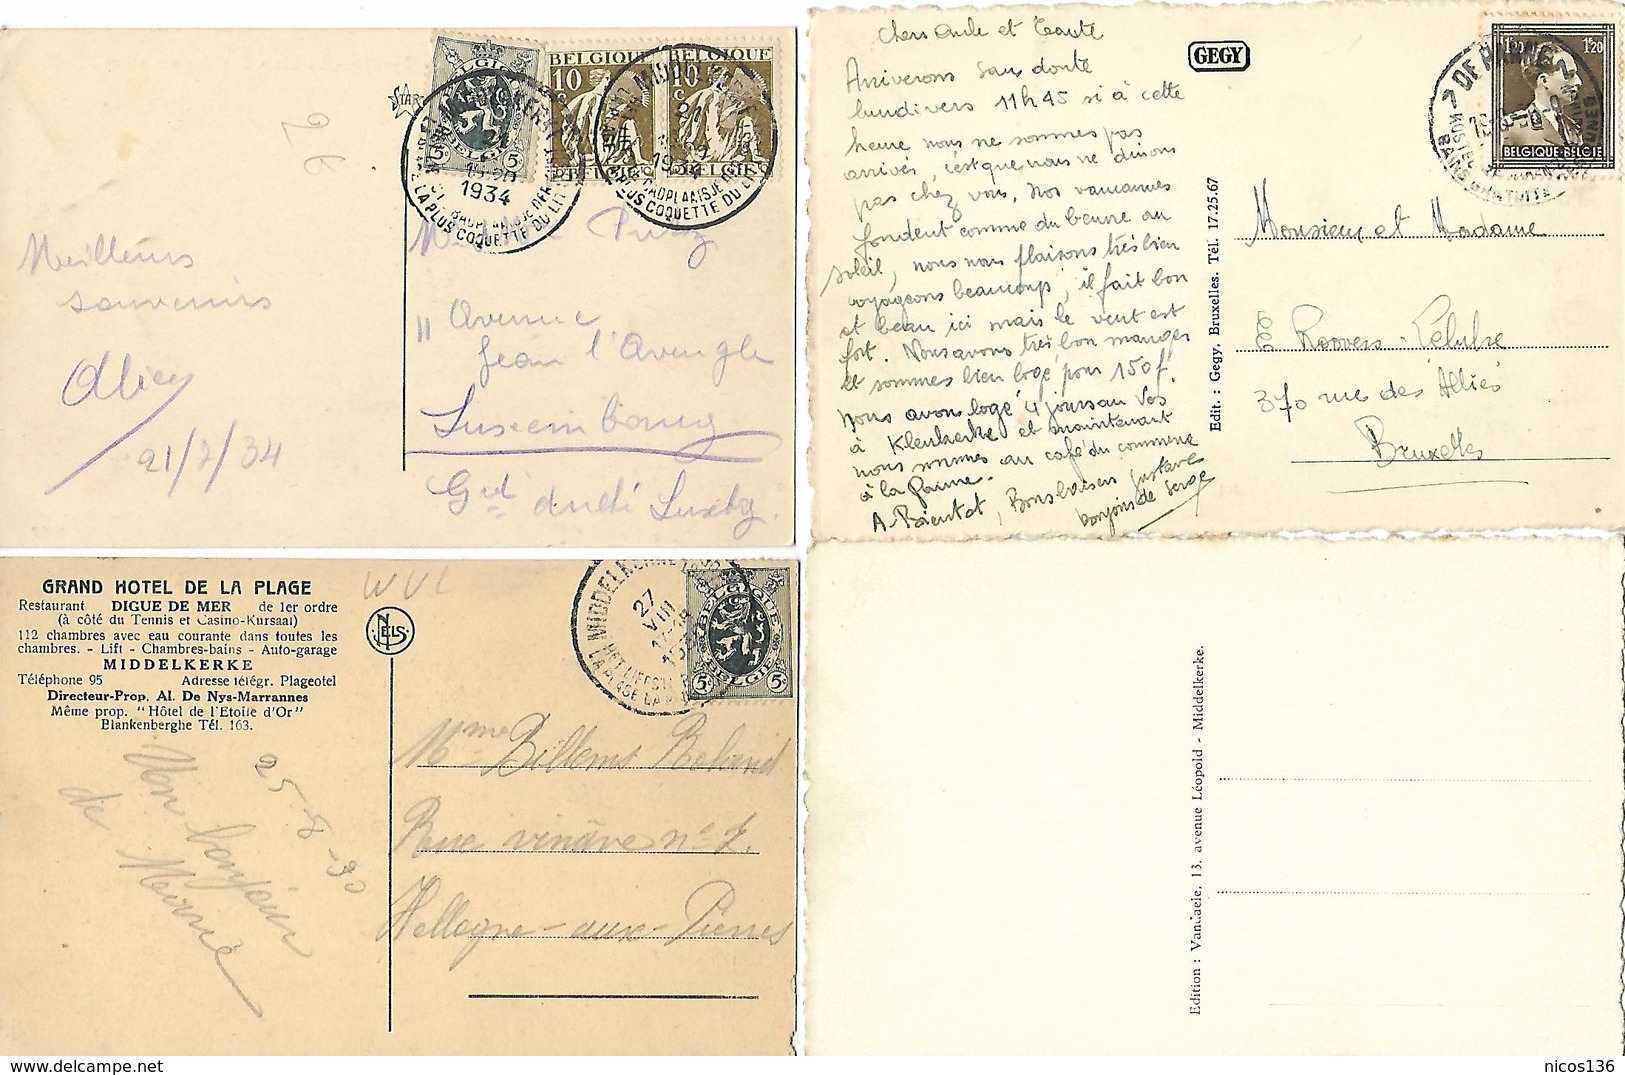 STAR
BELGIQUE
10 c
BELGIË
BELGIQUE
10 c
BELGIË
BELGIQUE
BELGIË
5 c
1934
LA PLUS COQUETTE DU LITTORAL
MIDDELKERKE
21
1934
PLUS COQUETTE DU LIT
Meilleurs
souvenirs
21/7/34
11 Avenue
Jean l'Aveugle
Luxembourg
Gd duché Luxbg.
Chers Oncle et Tante
Arriverons sans doute
lundi vers 11h45 si à cette
heure nous ne sommes pas
arrivés, c'est que nous ne dinons
pas chez vous. Nos vacances
fondent comme du beurre au
soleil, nous nous plaisons très bien
voyageons beaucoup, il fait bon
et beau ici mais le vent est
fort. Nous avons très bon manger
et sommes bien logé pour 150f.
Nous avons logé 4 jours au Vos
à Klemkerke et maintenant
nous sommes au café du commerce
à la Panne.
A Bientot, Bons baisers Gustave
bonjour de Serge
GEGY
Edit. : Gegy. Bruxelles. Tél. 17.25.67
1F20 1F20
BELGIQUE-BELGIË
DE PANNE
Monsieur et Madame
370 rue des Alliés
Bruxelles
GRAND HOTEL DE LA PLAGE
Restaurant DIGUE DE MER de 1er ordre
(à côté du Tennis et Casino-Kursaal)
112 chambres avec eau courante dans toutes les
chambres. - Lift - Chambres-bains - Auto-garage
MIDDELKERKE
Téléphone 95 Adresse télégr. Plageotel
Directeur-Prop. Al. De Nys-Marrannes
Même prop. "Hôtel de l'Etoile d'Or"
Blankenberghe Tél. 163.
NELS
MIDDELKERKE
27
VIII
BELGIQUE
BELGIË
5 c
25-8-30
Mon bonjour
de
Mme Billems Roland
Rue vinâve no 7.
Hollogne-aux-Pierres
Edition : Vandaele, 13, avenue Léopold - Middelkerke.
nicos136